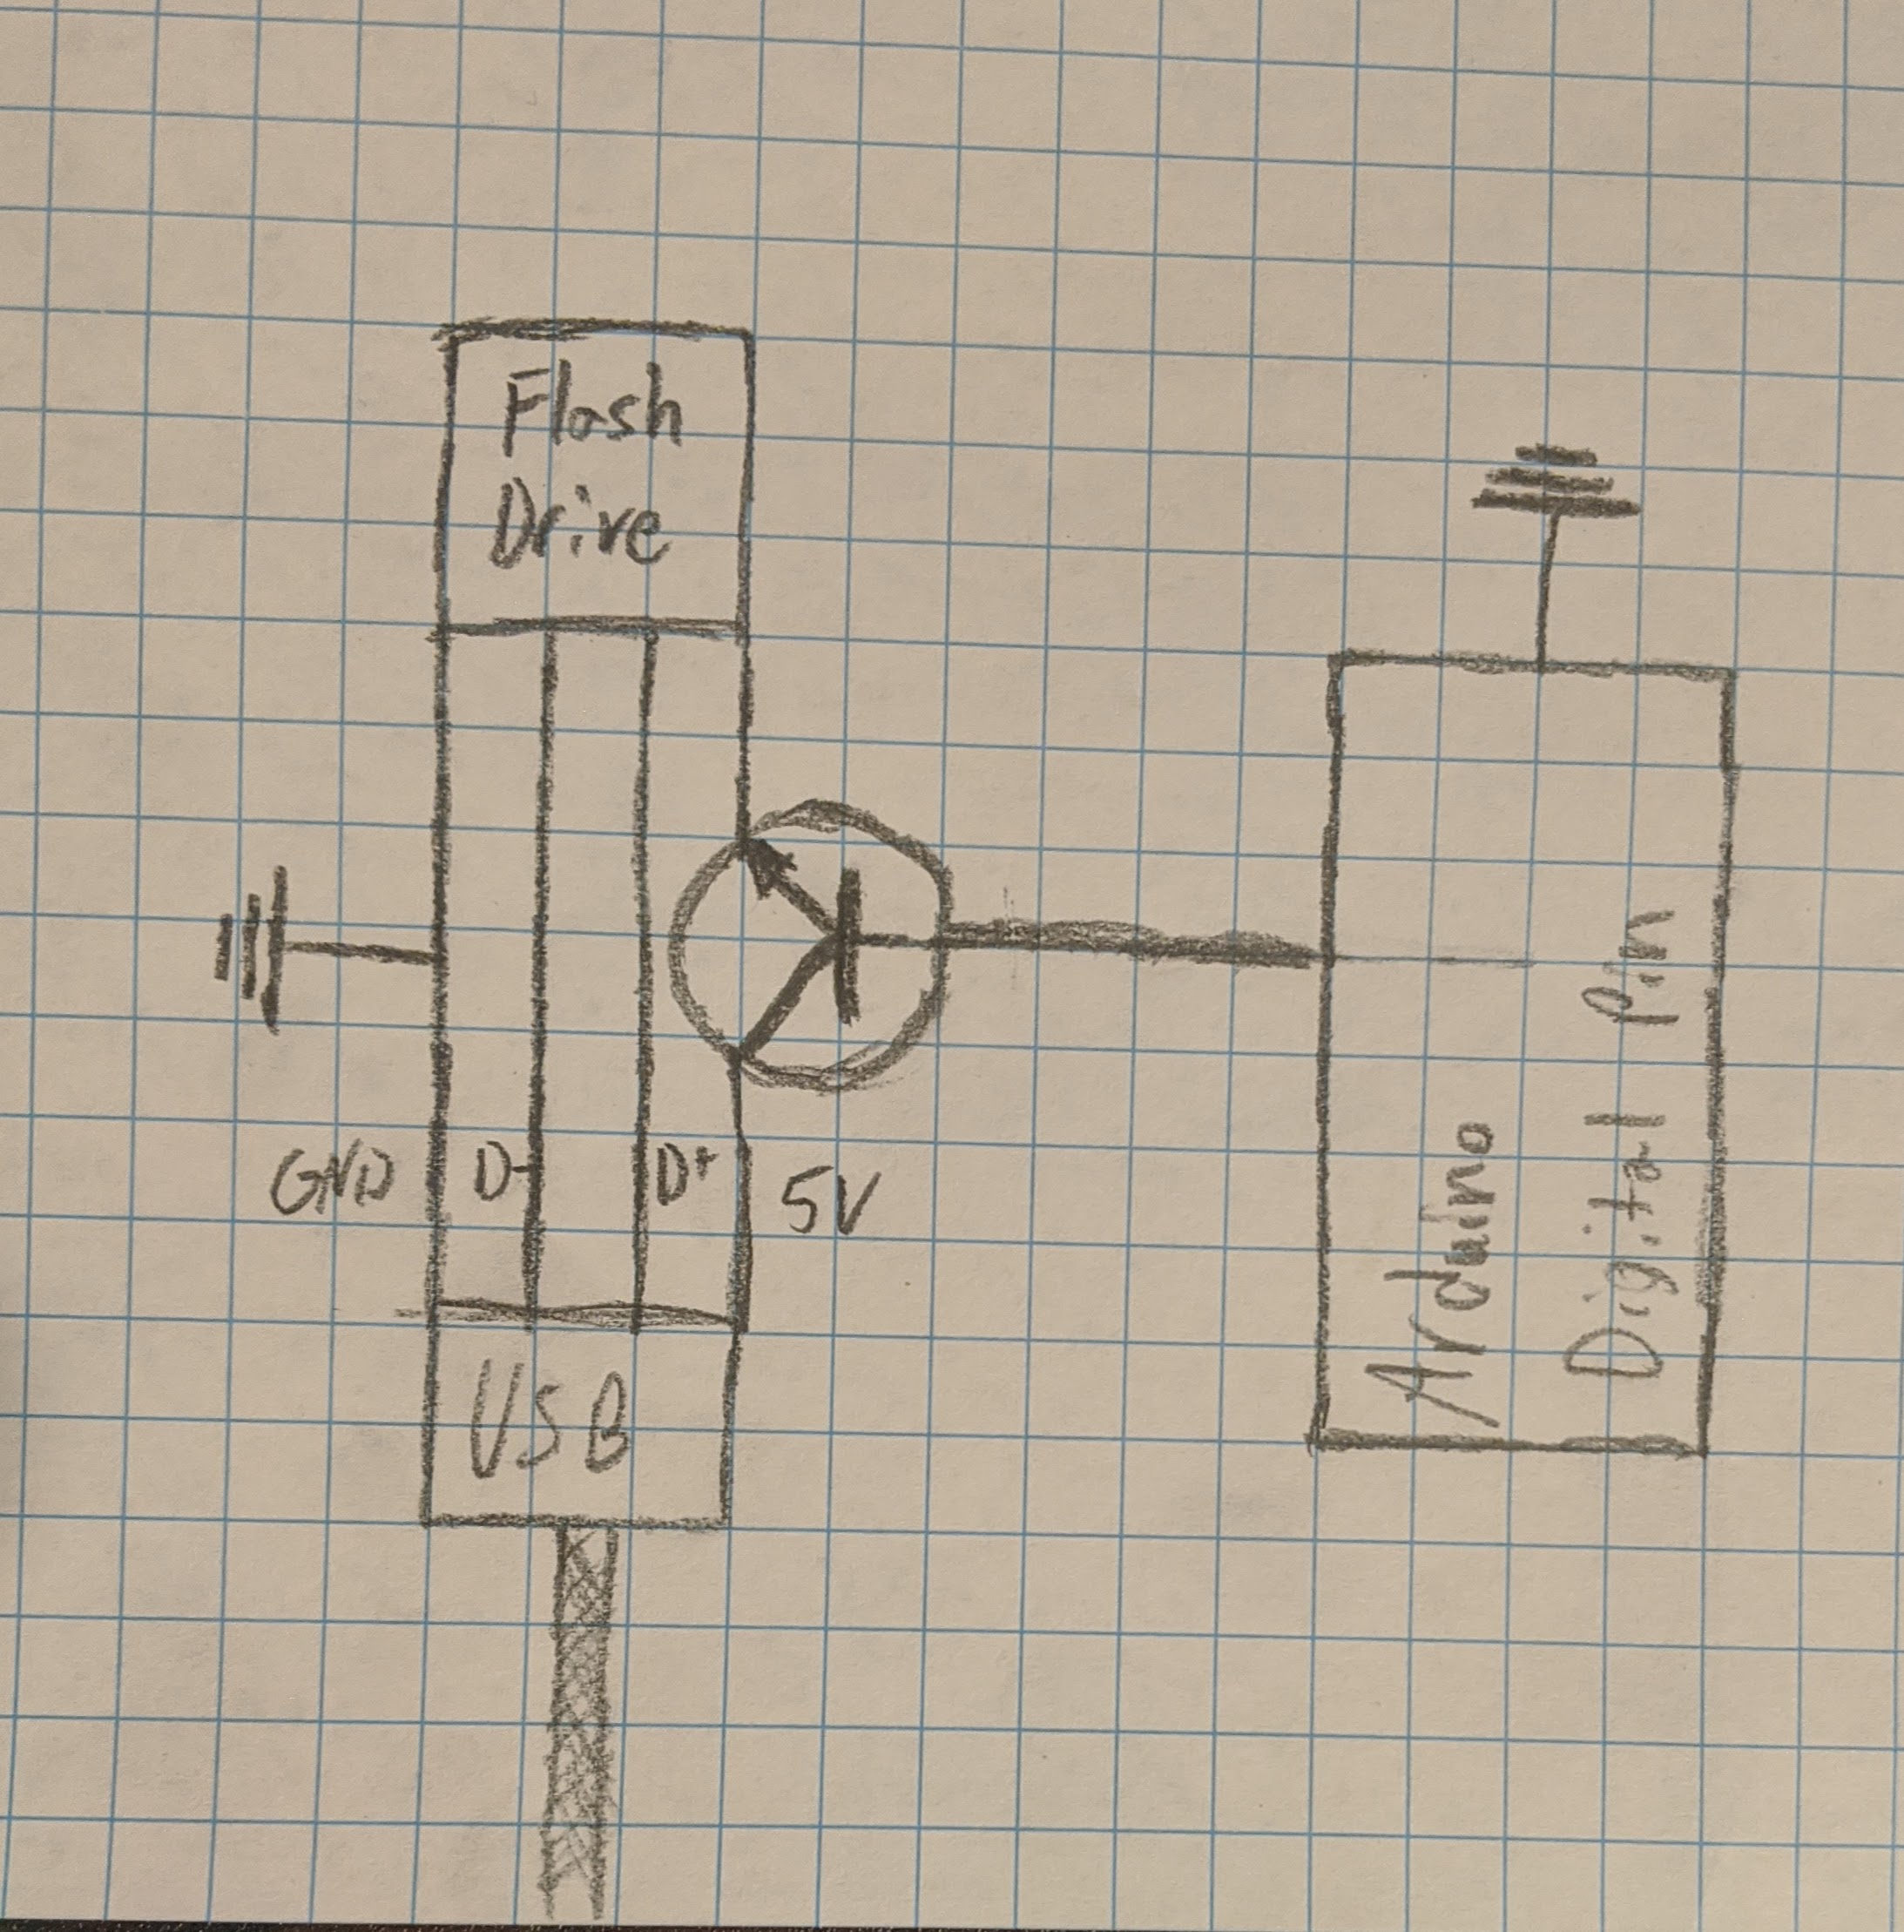 Flash
Drive
GND
D-
D+
5V
USB
Arduino
Digital Pin